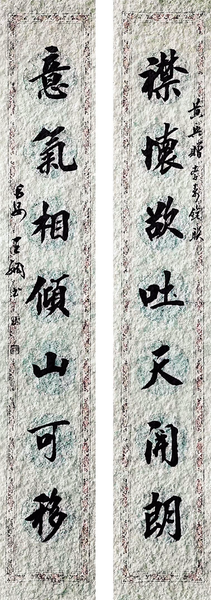 襟懷欲吐天開朗
意氣相傾山可移